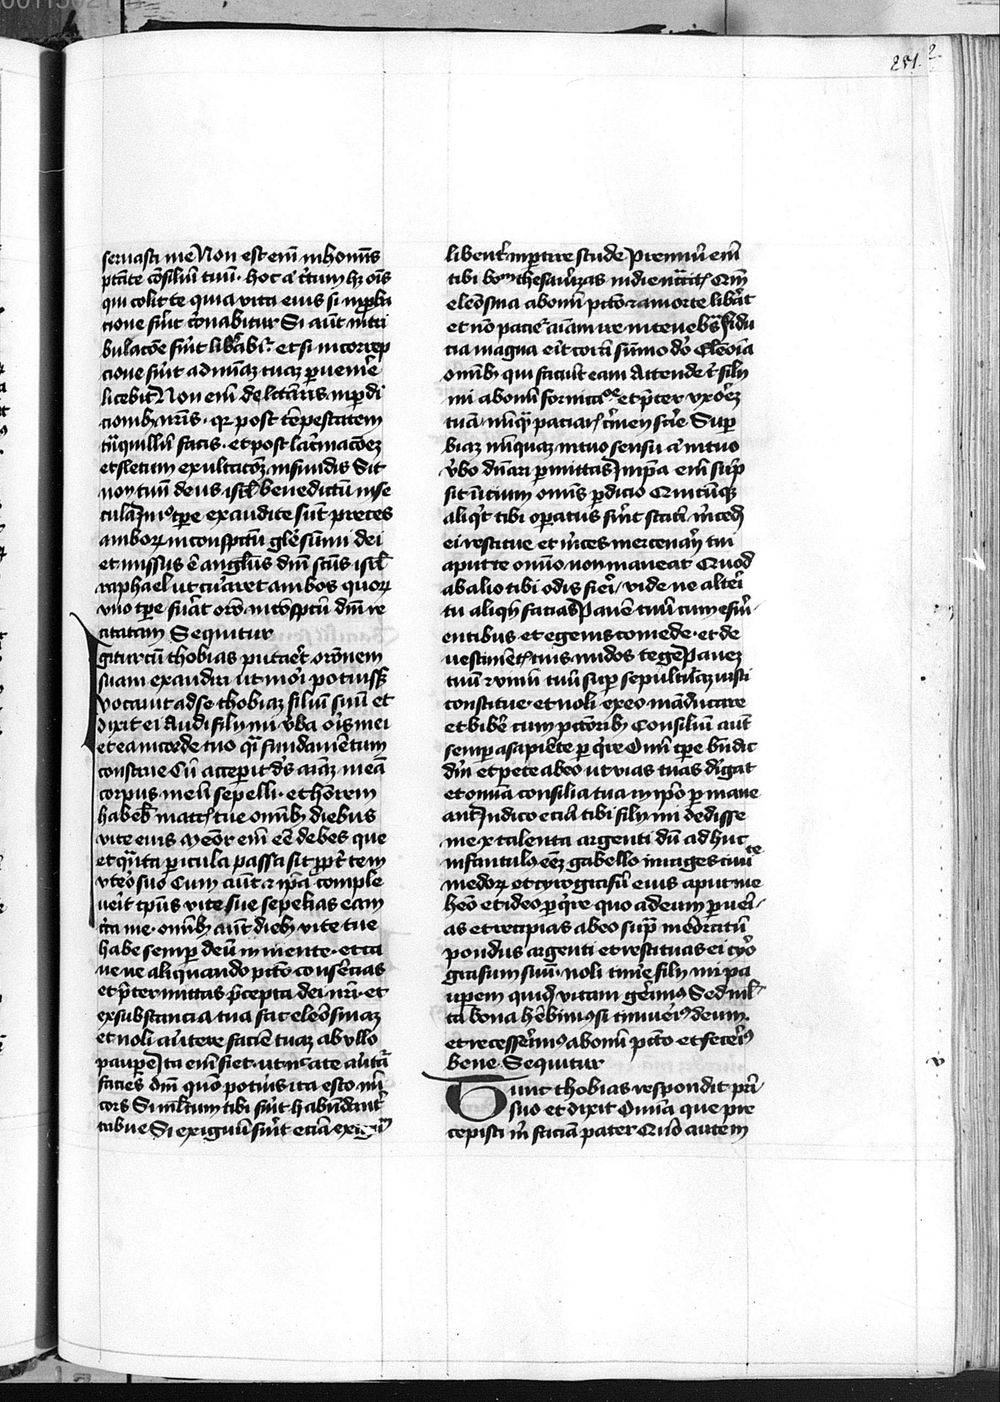 251. 2
seruasti me Non est em̄ in hominis
ptāte ꝯsiliū tuū. hoc aūt c̄tum hꝫ oīs
qui colit te quia vita eius si in proba
cione fūit coronabitur Si aūt in tri
bulacōe fūit liberabit̉ et si in correp
cione fūit ad m̄iaꝫ tuaꝫ ꝑuenire
licebit Non em̄ delectaris in ꝑdi
cionibꝫ nr̄is. qr post tēpestatem
tr̄quillū facis. et post lacrimacōeꝫ
et fletum exultacōꝫ infundis Sit
nomen tuū deus isrl̄ benedictū in se
cula In illo tꝑe exaudite sūt preces
amborꝫ in conspectu glorie sūmi dei
et missus ē angl̄us dn̄i scūs
raphael ut curaret ambos quorꝫ
vno tꝑe fuerāt orōnes in ꝯspectu dn̄i re
citatam Sequitur
Igitur cū thobias putaret orōnem
suam exaudiri ut mori potuisset
vocauit ad se thobiaꝫ filiū suū et
dixit ei Audi fili mi v̄ba oris mei
et ea in corde tuo q̄si fundamētum
construe Cū acceperit ds̄ aīaꝫ meā
corpus meū sepelli. et honorem
habebis matri tue omībꝫ diebus
vite eius Memor em̄ eē debes que
et quāta ꝑicula passa sit ꝓpter te in
vtero suo Cum aūt et ip̄a comple
uerit tp̄us vite sue sepelias eam
circa me. omībꝫ aūt diebꝫ vite tue
habe semper deū in mente. et ca
ue ne aliquando pctō consencias
et p̄termittas p̄cepta dei nr̄i. et
ex substancia tua fac eleosinaꝫ
et noli auertere faciē tuaꝫ ab vllo
pauꝑe Ita em̄ fiet ut nec a te auertat̉
facies dn̄i quō potueris ita esto mi
cors Si multum tibi fūit habundanter
tribue Si exiguū fūit eciā exiguū
libenter inpertire stude Premiū em̄
tibi bonū thesaurizas in die necessitatis Qm̄
eleosina ab omni pctō et a morte liberat
et nō pacietur aīam ire in tenebras Fidu
cia magna erit corā sūmo dō Elēosīa
omībꝫ qui faciūt eam Attende tibi fili
mi ab omni fornicacione et preter vxorēꝫ
tuā nūquā paciaris crimen scire Super
biaꝫ nūquaꝫ in tuo sensu aut in tuo
v̄bo dn̄ari ꝑmittas In ip̄a em̄ sūp
sit inicium omnis ꝑdicio Quicūqꝫ
aliquit tibi operatus fūit statim mercedē
ei restitue et merces mercenarij tui
aput te omnino non maneat Quod
ab alio tibi odis fieri / vide ne alteri
tu aliquando facias Panē tuū cum esuri-
entibus et egenis comede. et de
vestimentis tuis nudos tege Paneꝫ
tuū et vinū tuū super sepulturaꝫ iusti
constitue. et noli ex eo manducare
et bibere cum pctōribꝫ Consiliū aūt
semper a sapiēte perquire Omī tꝑe benedic
dn̄ et pete ab eo ut vias tuas dirigat
et omnia consilia tua in ip̄o permane
ant Indico eciā tibi fili mi dedisse
me x talenta argenti dū adhuc
infantulus eēs gabello in rages ciuitate
medorꝫ et cyrografū eius aput me
habeo et ideo perquire quo ad eum perueni-
as et recipias ab eo supra memoratū
pondus argenti et restituas ei cyro
grafum suū. noli timere fili mi pau
perem quidem vitam gerimus Sed mul-
ta bona habebimus si timuerimus deum.
et recesserimus ab omni pctō et fecerimus
bene. Sequitur
Tunc thobias respondit patri
suo et dixit Omnia que pre
cepisti mi faciā pater Quō autem